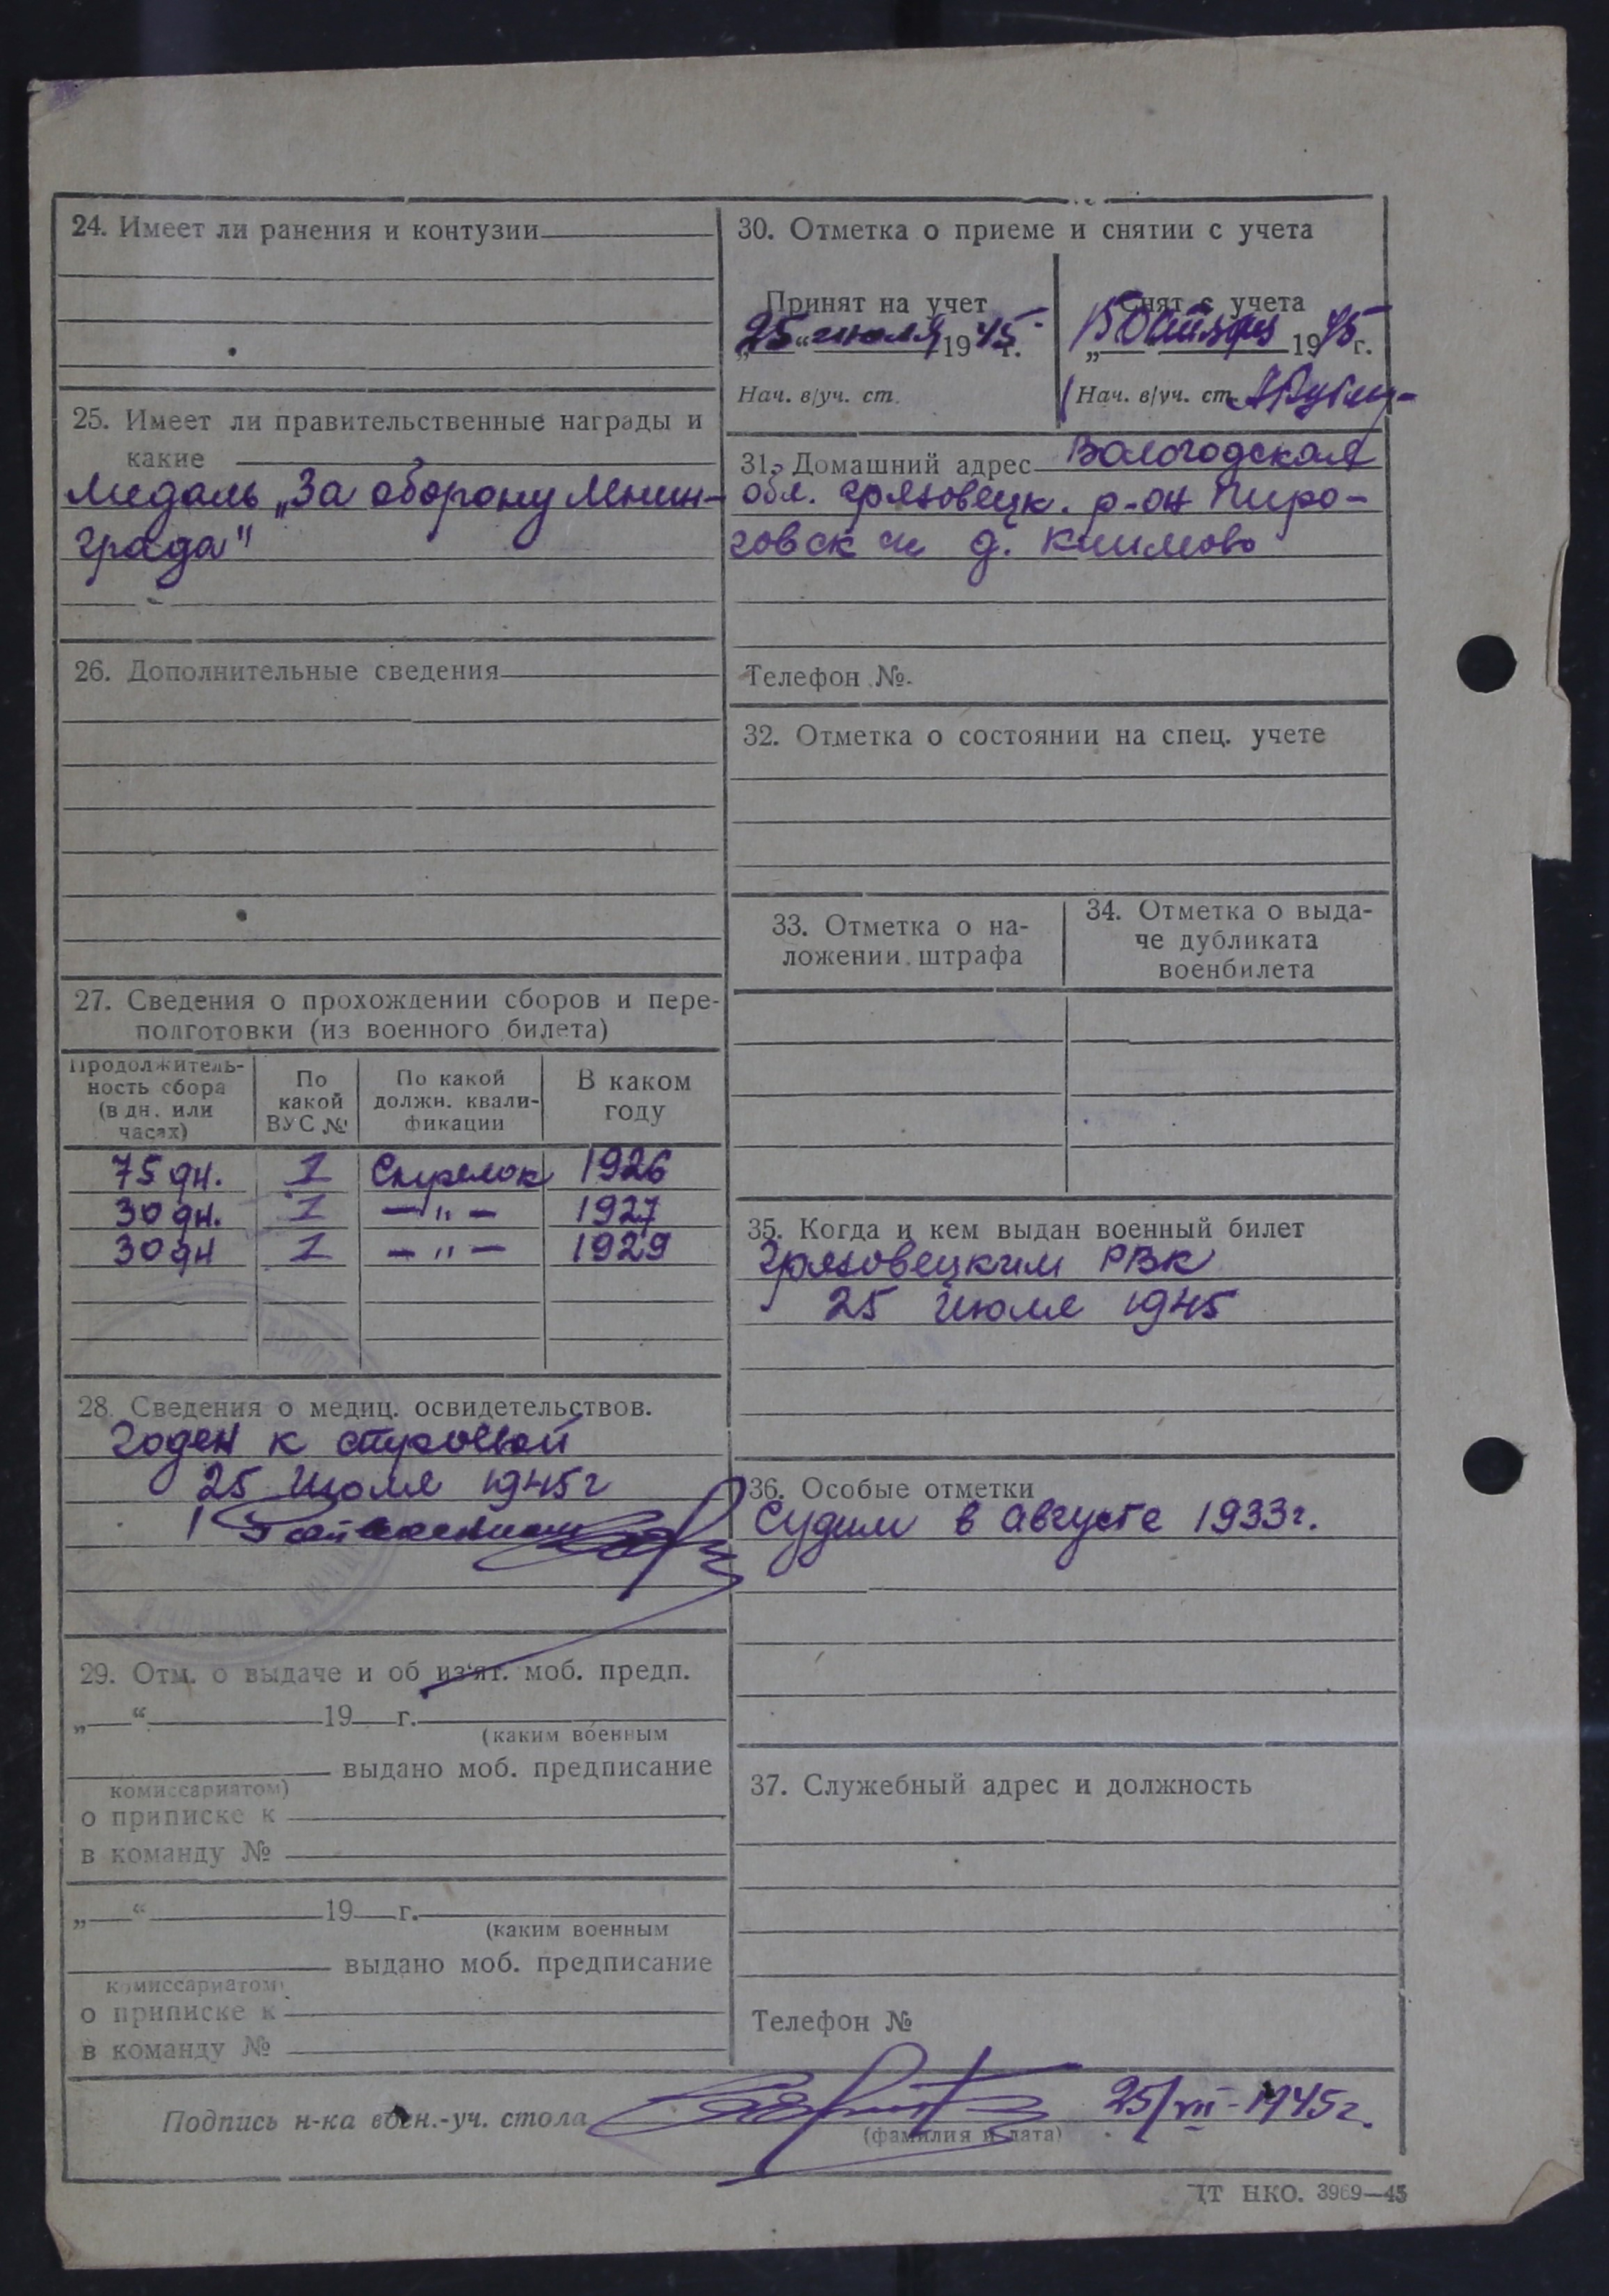 24. Имеет ли ранения и контузии
25. Имеет ли правительственные награды и
какие
Медаль „За оборону Ленин-
града"
26. Дополнительные сведения
27. Сведения о прохождении сборов и пере-
подготовки (из военного билета)
Продолжитель-
ность сбора
(в дн. или
часах)
По
какой
ВУС №
По какой
должн. квали-
фикации
В каком
году
75 дн. 1 Стрелок 1926
30 дн. 1 —"— 1927
30 дн 1 —"— 1929
28. Сведения о медиц. освидетельствов.
Годен к строевой
25 Июля 1945г
29. Отм. о выдаче и об из'ят. моб. предп.
„ “ 19 г.
(каким военным
выдано моб. предписание
комиссариатом)
о приписке к
в команду №
„ “ 19 г.
(каким военным
выдано моб. предписание
комиссариатом)
о приписке к
в команду №
30. Отметка о приеме и снятии с учета
Принят на учет
„25“ июля 1945 г.
Нач. в/уч. ст.
Снят с учета
15 Октября 1945 г.
Нач. в/уч. ст.
31. Домашний адрес Вологодская
обл. Грязовецк. р-он Пиро-
говск с д. Климово
Телефон №
32. Отметка о состоянии на спец. учете
33. Отметка о на-
ложении штрафа
34. Отметка о выда-
че дубликата
военбилета
35. Когда и кем выдан военный билет
Грязовецким РВК
25 Июля 1945
36. Особые отметки
Судим в августе 1933г.
37. Служебный адрес и должность
Телефон №
Подпись н-ка воен.-уч. стола 25/VII-1945г.
(фамилия и дата)
ЦТ НКО. 3969—45